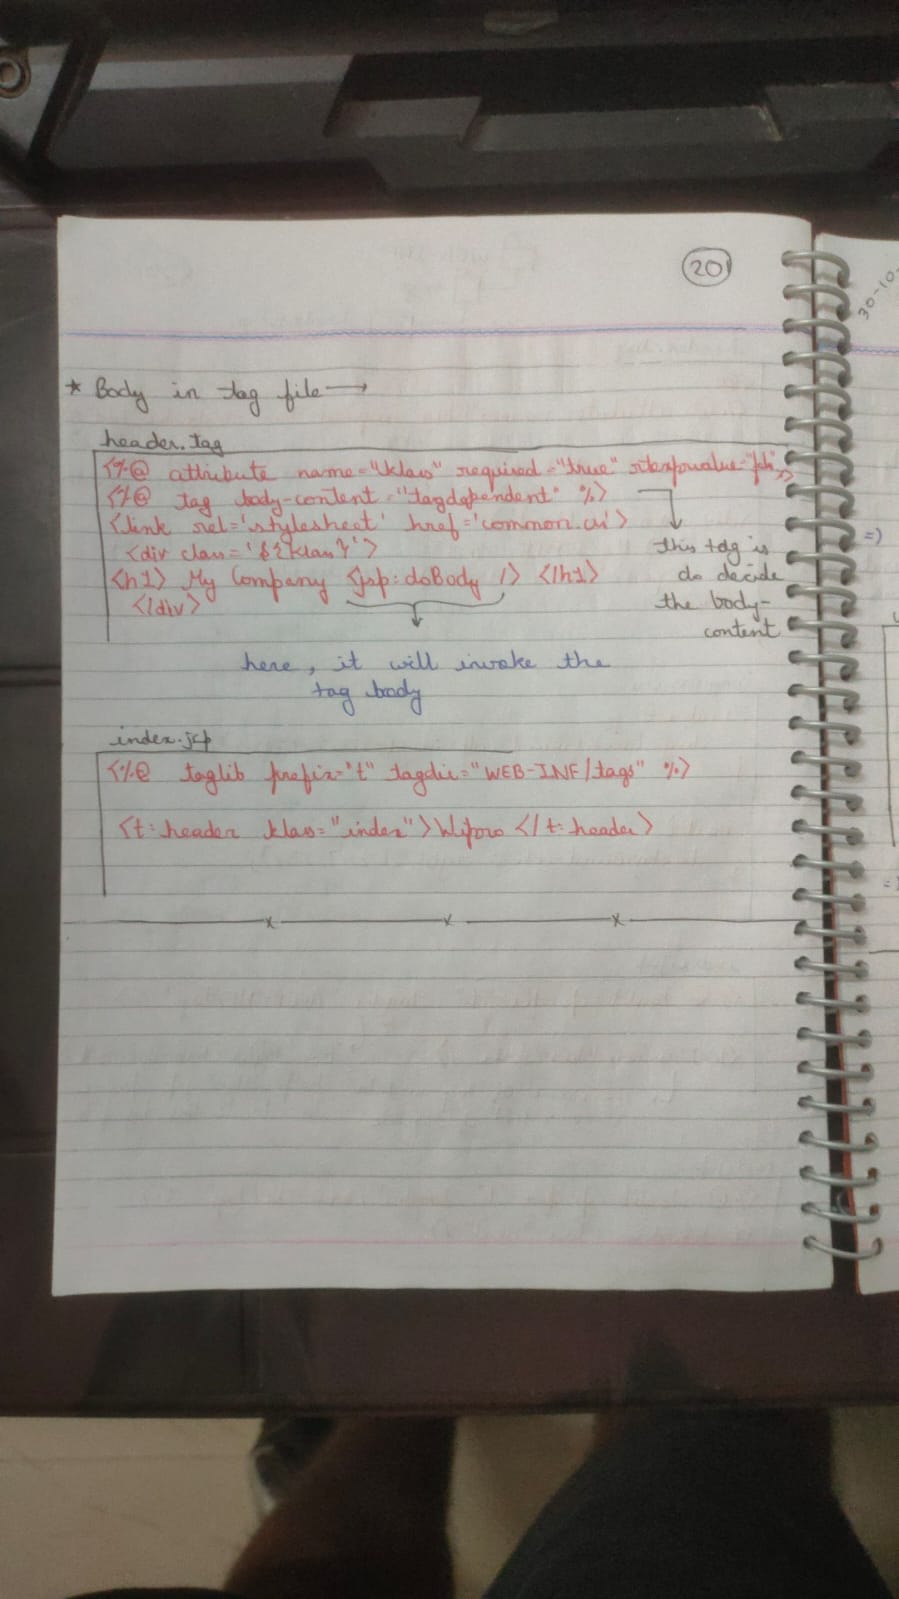 201
30-10-
* Body in tag file →
header.tag
<%@ attribute name="klass" required="true" rtexprvalue="fal" %>
<%@ tag body-content="tagdependent" %>
<link rel='stylesheet' href='common.css'>
<div class='${klass}'>
<h1> My Company <jsp:doBody /> </h1>
</div>
this tag is
do decide
the body-
content
here, it will invoke the
tag body
index.jsp
<%@ taglib prefix="t" tagdir="WEB-INF/tags" %>
<t:header klass="index">Wipro</t:header>
=)